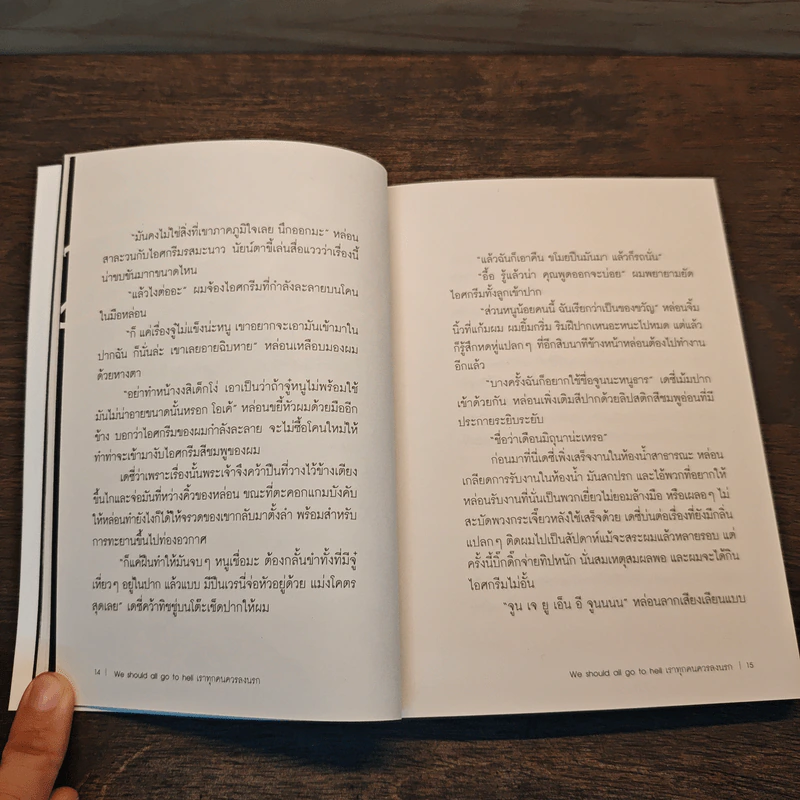 "มันคงไม่ใช่สิ่งที่เขาภาคภูมิใจเลย นึกออกมะ" หล่อน
สาละวนกับไอศกรีมรสมะนาว นัยน์ตาขี้เล่นสื่อแววว่าเรื่องนี้
น่าขบขันมากขนาดไหน
"แล้วไงต่ออะ" ผมจ้องไอศกรีมที่กำลังละลายบนโคน
ในมือหล่อน
"ก็ แค่เรื่องจู๋ไม่แข็งน่ะหนู เขาอยากจะเอามันเข้ามาใน
ปากฉัน ก็นั่นล่ะ เขาเลยอายฉิบหาย" หล่อนเหลือบมองผม
ด้วยหางตา
"อย่าทำหน้างงสิเด็กโง่ เอาเป็นว่าถ้าจู๋หนูไม่พร้อมใช้
มันไม่น่าอายขนาดนั้นหรอก โอเค้" หล่อนขยี้หัวผมด้วยมืออีก
ข้าง บอกว่าไอศกรีมของผมกำลังละลาย จะไม่ซื้อโคนใหม่ให้
ทำท่าจะเข้ามางับไอศกรีมสีชมพูของผม
เดซี่ว่าเพราะเรื่องนั้นพระเจ้าจึงคว้าปืนที่วางไว้ข้างเตียง
ขึ้นไกและจ่อมันที่หว่างคิ้วของหล่อน ขณะที่ตะคอกแกมบังคับ
ให้หล่อนทำยังไงก็ได้ให้จรวดของเขากลับมาตั้งลำ พร้อมสำหรับ
การทะยานขึ้นไปท่องอวกาศ
"ก็แค่ฝืนทำให้มันจบๆ หนูเชื่อมะ ต้องกลั้นขำทั้งที่มีจู๋
เหี่ยวๆ อยู่ในปาก แล้วแบบ มีปืนเวรนี่จ่อหัวอยู่ด้วย แม่งโคตร
สุดเลย" เดซี่คว้าทิชชู่บนโต๊ะเช็ดปากให้ผม
14 | We should all go to hell เราทุกคนควรลงนรก
"แล้วฉันก็เอาคืน ขโมยปืนมันมา แล้วก็รถนั่น"
"อื้อ รู้แล้วน่า คุณพูดออกจะบ่อย" ผมพยายามยัด
ไอศกรีมทั้งลูกเข้าปาก
"ส่วนหนูน้อยคนนี้ ฉันเรียกว่าเป็นของขวัญ" หล่อนจิ้ม
นิ้วที่แก้มผม ผมยิ้มกริ่ม ริมฝีปากเหนอะหนะไปหมด แต่แล้ว
ก็รู้สึกหดหู่แปลกๆ ที่อีกสิบนาทีข้างหน้าหล่อนต้องไปทำงาน
อีกแล้ว
"บางครั้งฉันก็อยากใช้ชื่อจูนนะหนูธาร" เดซี่เม้มปาก
เข้าด้วยกัน หล่อนเพิ่งเติมสีปากด้วยลิปสติกสีชมพูอ่อนที่มี
ประกายระยิบระยับ
"ชื่อว่าเดือนมิถุนาน่ะเหรอ"
ก่อนมาที่นี่เดซี่เพิ่งเสร็จงานในห้องน้ำสาธารณะ หล่อน
เกลียดการรับงานในห้องน้ำ มันสกปรก และไอ้พวกที่อยากให้
หล่อนรับงานที่นั่นเป็นพวกเยี่ยวไม่ยอมล้างมือ หรือเผลอๆ ไม่
สะบัดพวงกระเจี๊ยวหลังใช้เสร็จด้วย เดซี่บ่นต่อเรื่องที่ยังมีกลิ่น
แปลกๆ ติดผมไปเป็นสัปดาห์แม้จะสระผมแล้วหลายรอบ แต่
ครั้งนี้บิ๊กดิ๊กจ่ายทิปหนัก นั่นสมเหตุสมผลพอ และผมจะได้กิน
ไอศกรีมไม่อั้น
"จูน เจ ยู เอ็น อี จูนนนน" หล่อนลากเสียงเลียนแบบ
We should all go to hell เราทุกคนควรลงนรก | 15